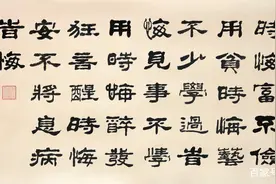 時悔富不儉
用貧時悔藝
不少學過旹
悔見事不學
用時悔醉發
狂言醒時悔
安不將息病
旹悔